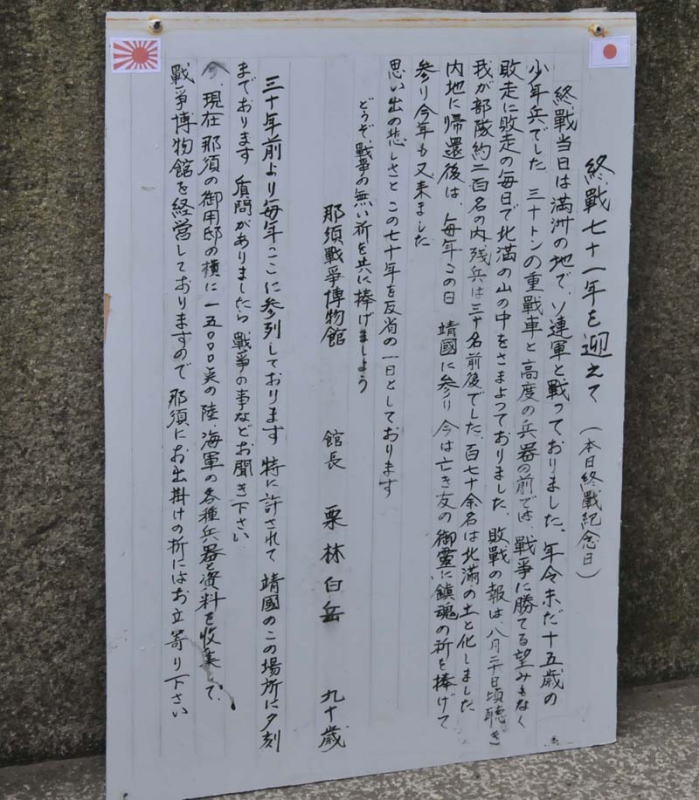 終戦七十一年を迎えて（本日終戦紀念日）
終戦当日は満洲の地で、ソ連軍と戦っておりました、年令未だ十五歳の
少年兵でした 三十トンの重戦車と高度の兵器の前では、戦争に勝てる望みもなく
敗走に敗走の毎日で北満の山の中をさまよっておりました、敗戦の報は八月二十日頃聴き
我が部隊約二百名の内残兵は三十名前後でした、百七十余名は北満の土と化しました
内地に帰還後は、毎年この日 靖國に参り 今は亡き友の御霊に鎮魂の祈を捧げて
参り今年も又来ました
思い出の悲しさと この七十年を反省の一日としております
どうぞ戦争の無い祈を共に捧げましょう
那須戦争博物館 館長 栗林白岳 九十歳
三十年前より毎年ここに参列しております 特に許されて 靖國のこの場所に夕刻
までおります 質問がありましたら 戦争の事などお聞き下さい
現在 那須の御用邸の横に 一五〇〇〇点の陸、海軍の各種兵器と資料を收集して、
戦争博物館を経営しておりますので 那須にお出掛けの折にはお立寄り下さい